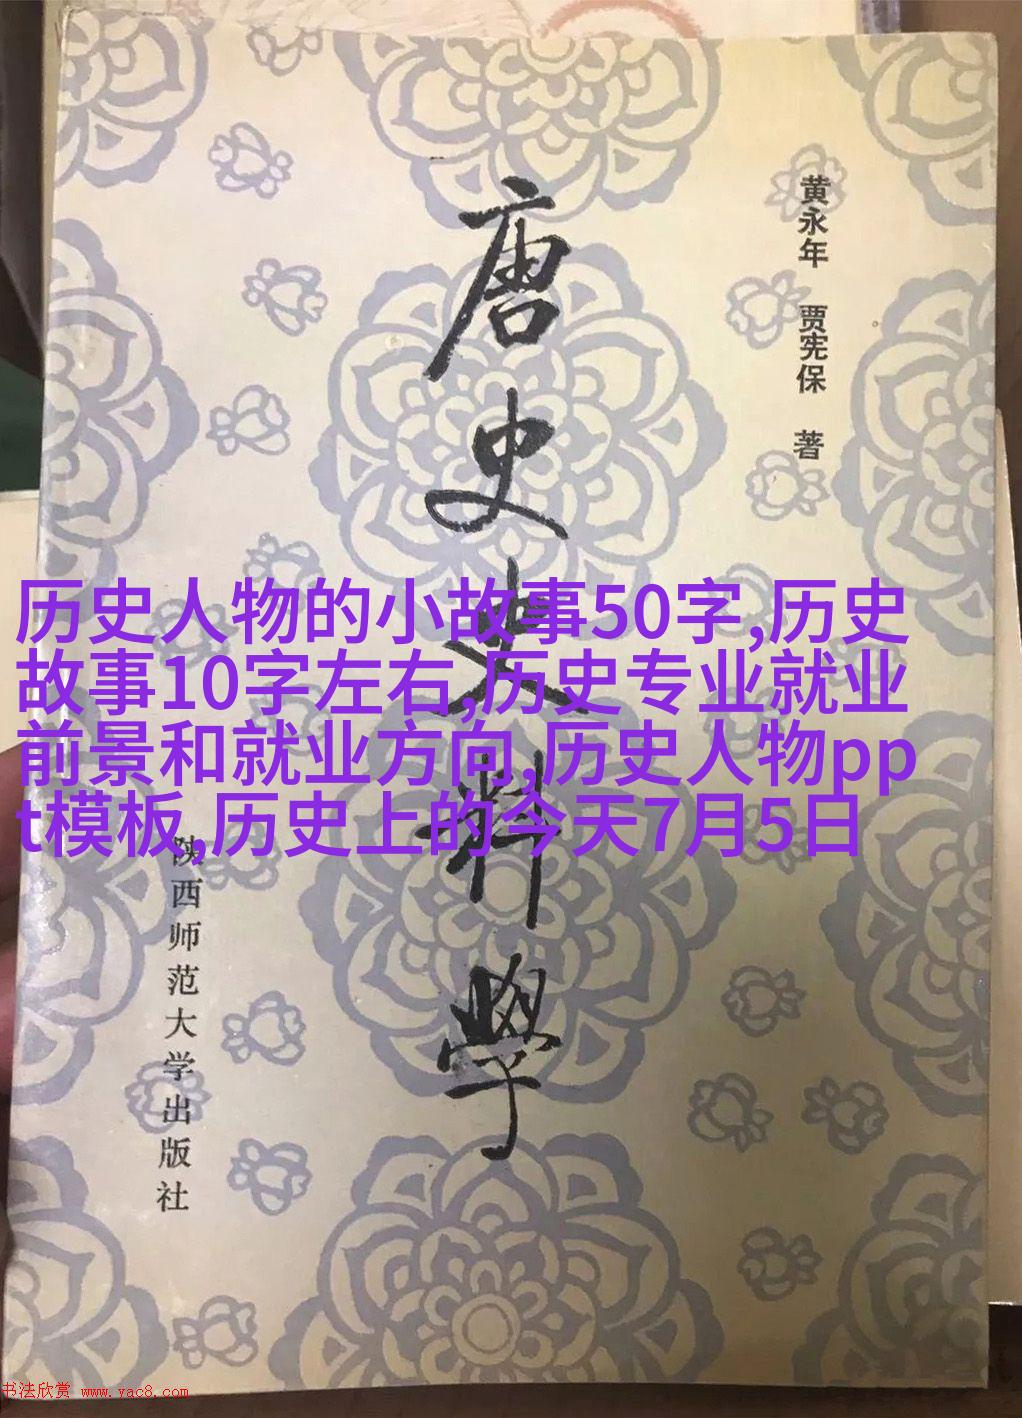 黄永年 贾宪保 著
唐史史料學
历史人物的小故事50字,历史
故事10字左右,历史专业就业
前景和就业方向,历史人物pp
t模板,历史上的今天7月5日
陕西师范大学出版社
书法欣赏 www.yac8.com